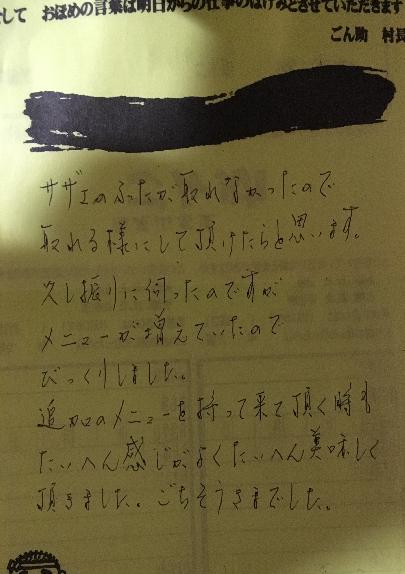 して おほめの言葉は明日からの仕事のはげみとさせていただきます
ごん助 村長
サザエのふたが取れなかったので
取れる様にして頂けたらと思います。
久し振りに伺ったのですが
メニューが増えていたので
びっくりしました。
追加のメニューを持って来て頂く時も
たいへん感じがよくたいへん美味しく
頂きました。ごちそうさまでした。